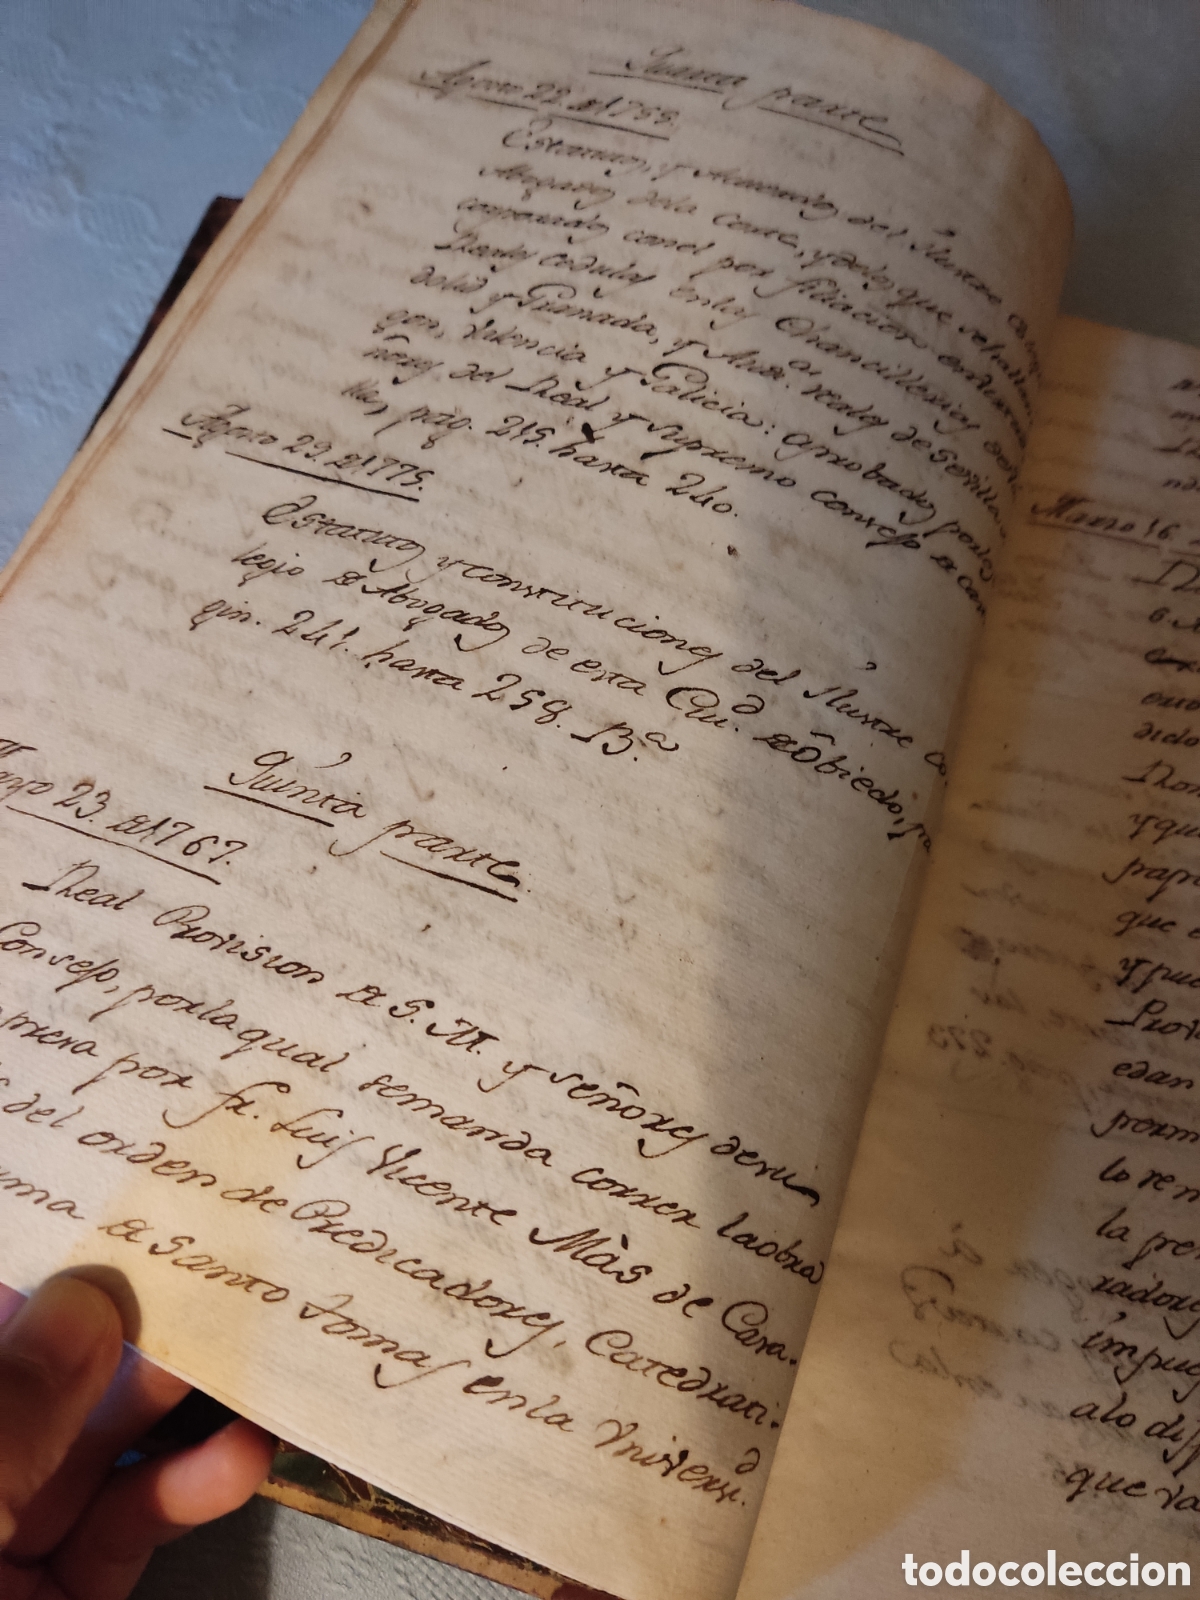 Quarta parte
Agosto 22. de 1755.
Estatutos, y Acuerdos del Ilustre Coleg
Abogados dela Corte, y delos que se hallan in
corporados conel por filiacion en virtud
Reales cedulas en las Chancillerias de Va
dolid y Granada, y Aud.as reales de Sevilla
gon, Valencia y Galicia: aprobados por los
ñores del Real y supremo consejo de Cas
lla, pag. 215. hasta 240.
Agosto 29. de 1775.
Estatutos y constituciones del Ilustre Co.
legio de Abogados de esta Ciu.d de Obiedo, pa
gin. 241. hasta 258. B.a
Quinta parte
Mayo 23. de 1767.
Real Provision de S. M. y señores de su
Consejo, por la qual se manda correr la obra
presa por fr. Luis Vicente Màs de Casa.
del orden de Predicadores, Catedrati.
uma de Santo Tomas en la Universi.d
Marzo 16
didos
que
papa
que e
y pue
Provi
edan
la pen
radores
impug
alo dif
que va
todocoleccion